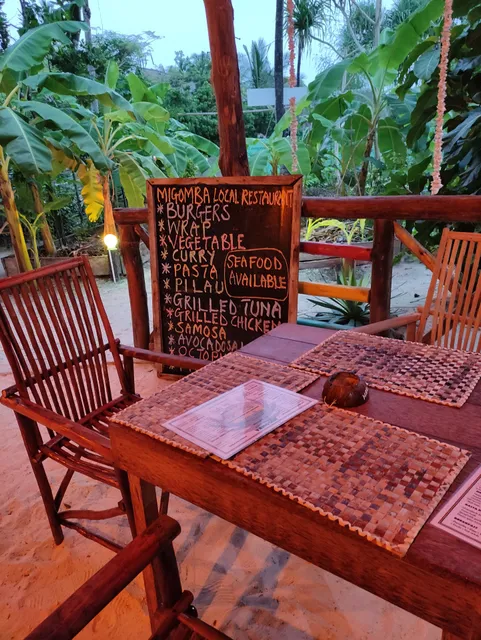 MIGOMBA LOCAL RESTAURANT
* BURGERS
* WRAP
* VEGETABLE
* CURRY
* PASTA
* PILAU
SEAFOOD
AVAILABLE
* GRILLED TUNA
* GRILLED CHICKEN
* SAMOSA
* AVOCADO
* OCTOPU